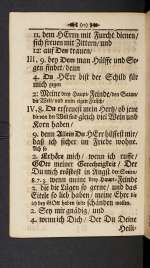 (10)
11. dem HErrn mit Furcht dienen/
sich freuen mit Zittern/ und
12. auf Den trauen/
III. 9. bey Dem man Hülffe und Se-
gen findet/ denn
4. Du HErr bist der Schild für
mich und
2. Meine Feinde/ den Satan/
die Welt und mein eigen Fleisch/
IV. 8. Du erfreuest mein Hertz/ ob jene
die von der Welt
gleich viel Wein und
Korn haben/
9. denn Allein Du HErr hilffest mir/
daß ich sicher im Friede wohne.
2. Erhöre mich/ wenn ich ruffe/
GOtt meiner Gerechtigkeit/ Der
Du mich tröstest in Angst/
6.7.3. wenn meine Feinde
2. die die Lügen so gerne/ und das
Eitele so lieb haben/ meine Ehre
schänden wollen.
2. Sey mir gnädig/ und
4. wenn ich Dich/ Der Du Deine
Heili-